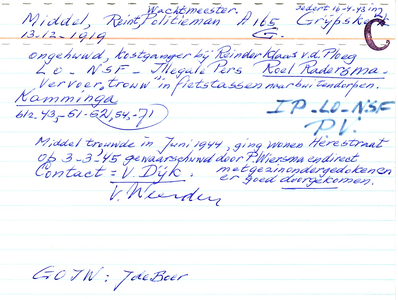 Wachtmeester.
Middel, Reint, Politieman A 165 Grijpskerk
Sedert 16-4-43 in
13-12-1919 G.
ongehuwd, kostganger bij Reinder Klaas v.d. Ploeg
L O - NSF - Illegale Pers Roel Radersma.
Vervoer, trouw in fietstassen naar buitendorpen.
Kamminga
612.43,-51-52,54,-71
IP-LO-N.S.F
P.V.
Middel trouwde in Juni 1944, ging wonen Herestraat
op 3-3-'45 gewaarschuwd door P. Wiersma en direct
met gezin ondergedoken en
Contact = V. Dijk. er goed doorgekomen.
V. Weerden
GOIW: J de Boer